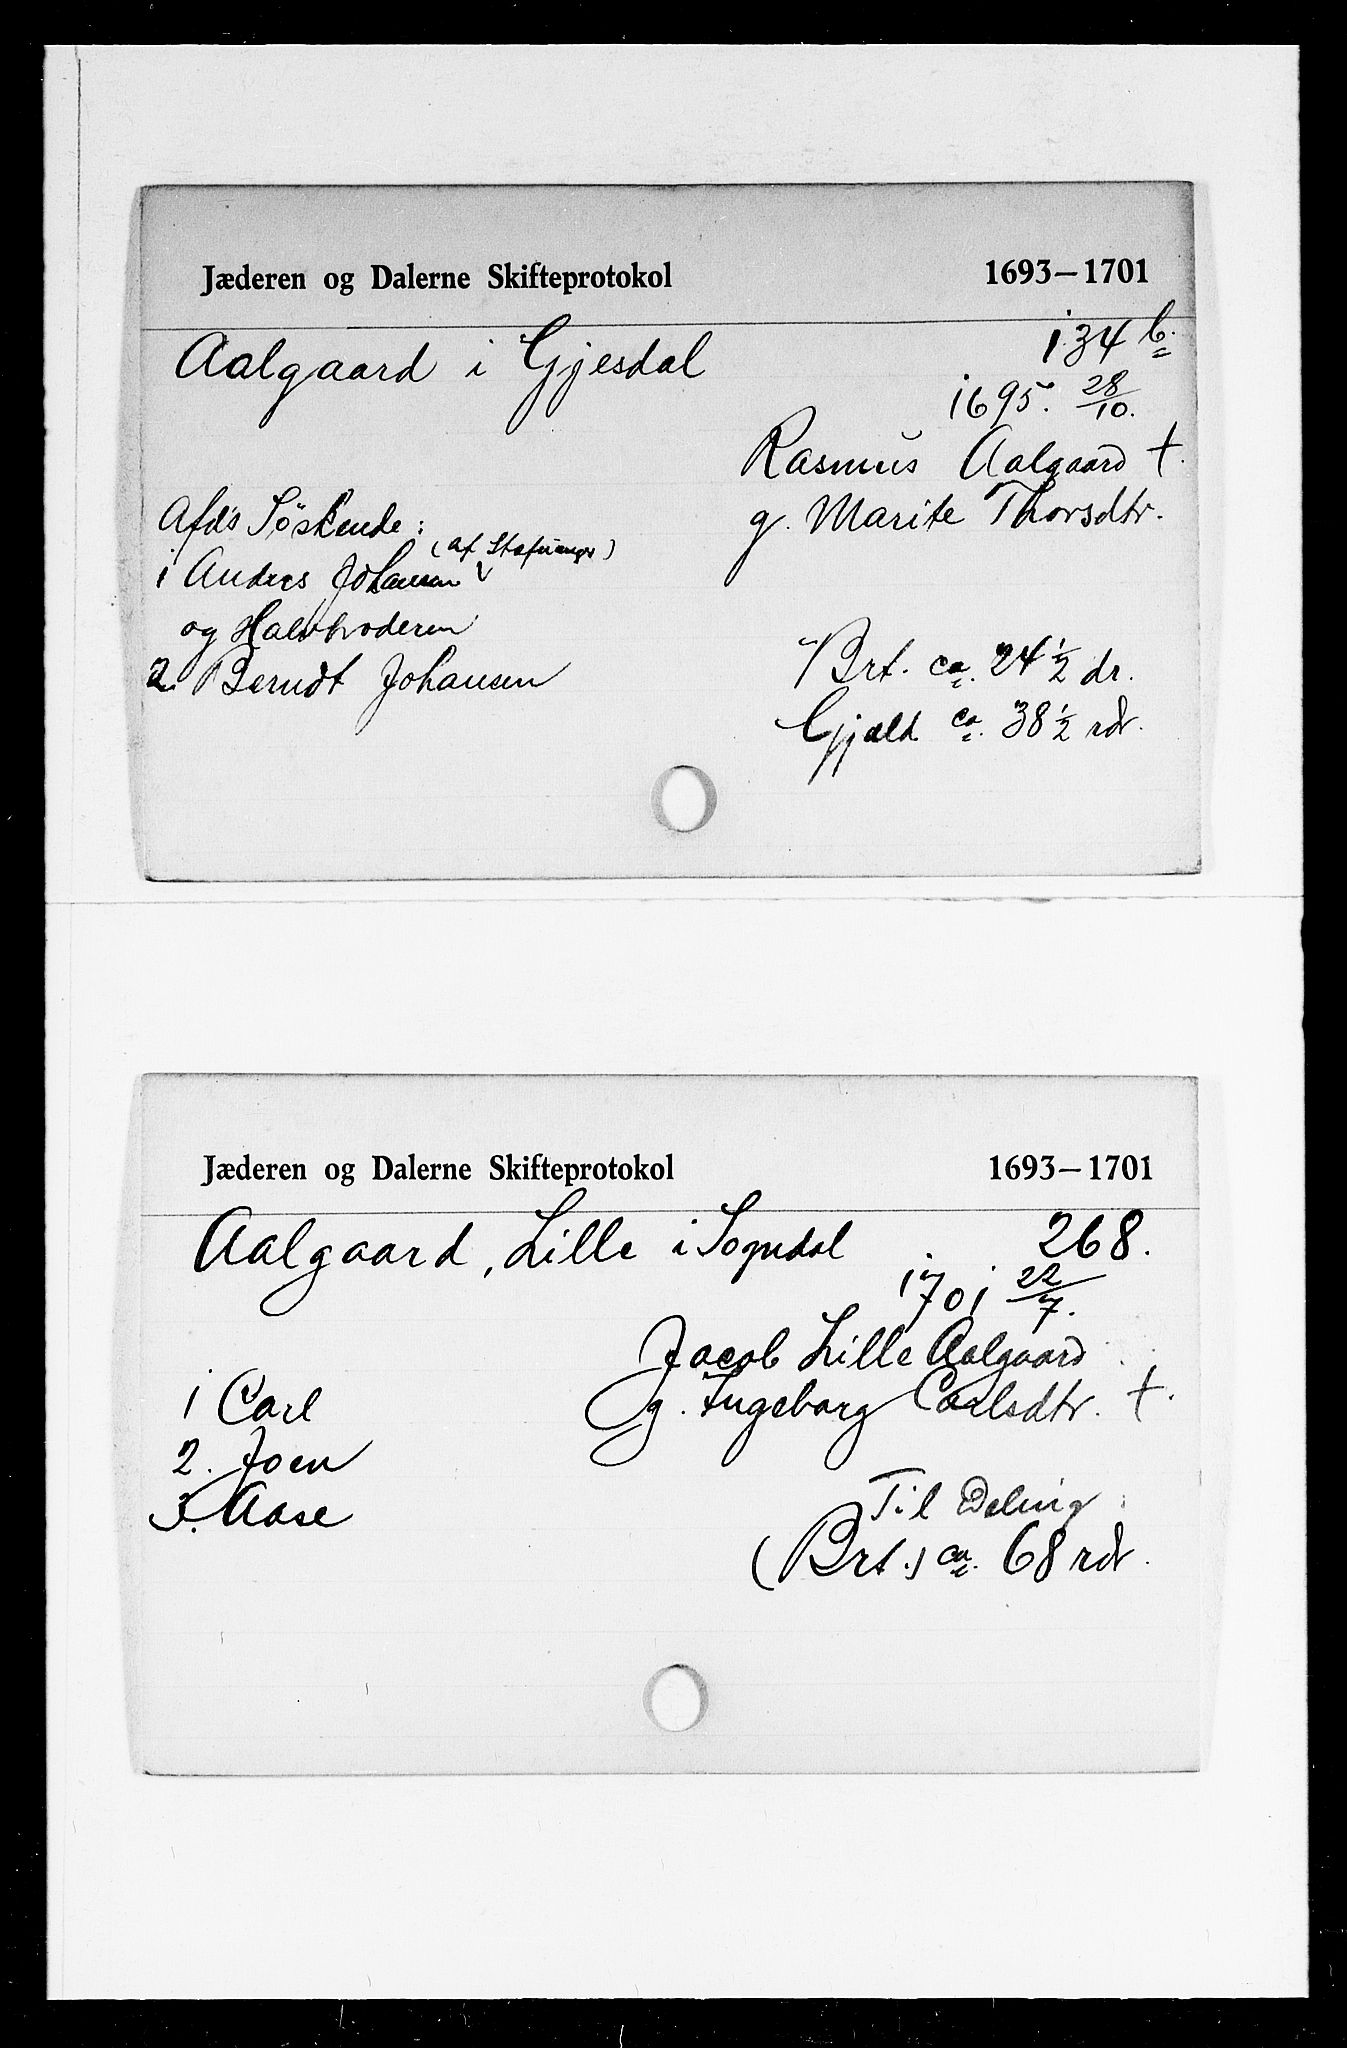 Jæderen og Dalerne Skifteprotokol 1693–1701
Aalgaard i Gjesdal 134 b.
1695. 28/10.
Rasmus Aalgaard †.
g. Marite Thorsdtr.
Afd's Söskende:
(af Stafanger)
1 Andres Johansen
og Halvbroderen
2. Berndt Johansen
Brt. ca. 24 1/2 dr.
Gjæld ca. 38 1/2 rdr.
Jæderen og Dalerne Skifteprotokol 1693–1701
Aalgaard, Lille i Sogndal 268.
1701 22/7.
Jacob Lille Aalgaard
g. Ingeborg Carlsdtr. †.
1 Carl
2. Joen
3. Aase
Til Deling:
(Brt.) ca. 68 rdr.